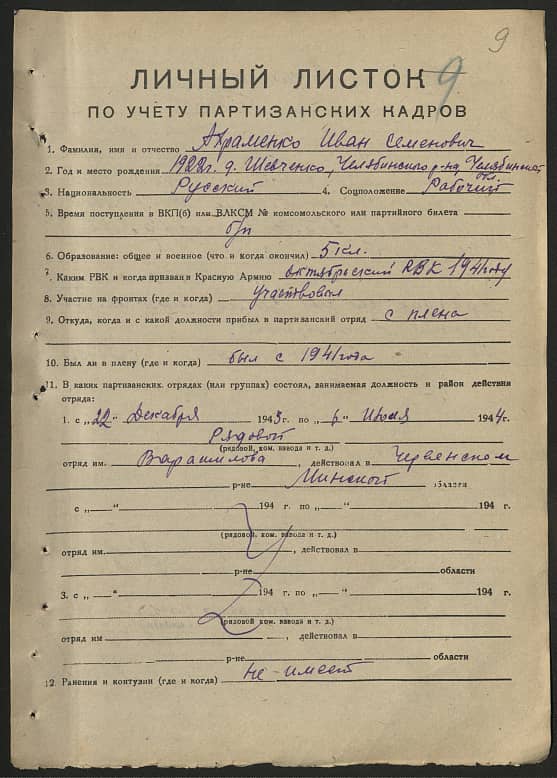 9
ЛИЧНЫЙ ЛИСТОК 9
ПО УЧЕТУ ПАРТИЗАНСКИХ КАДРОВ
1. Фамилия, имя и отчество Абраменко Иван Семенович
2. Год и место рождения 1922г. д. Шевченко, Челябинского р-на, Челябинской обл.
3. Национальность Русский 4. Соцположение Рабочий
5. Время поступления в ВКП(б) или ВЛКСМ № комсомольского или партийного билета
б/п
6. Образование: общее и военное (что и когда окончил) 5 кл.
7. Каким РВК и когда призван в Красную Армию октябрьский РВК 1941 году
8. Участие на фронтах (где и когда) участвовал
9. Откуда, когда и с какой должности прибыл в партизанский отряд с плена
10. Был ли в плену (где и когда) был с 1941 года
11. В каких партизанских отрядах (или группах) состоял, занимаемая должность и район действия
отряда:
1. с „22" Декабря 1943 г. по „6" Июля 1944 г.
Рядовой
(рядовой, ком. взвода и т. д.)
отряд им. Варашилова, действовал в Червенском
р-не Минской области
с „—" 194 г. по „—" 194 г.
(рядовой, ком. взвода и т. д.)
отряд им. , действовал в
р-не области
3. с „—" 194 г. по „—" 194 г.
(рядовой ком. взвода и т. д.)
отряд им , действовал в
р-не области
12. Ранения и контузии (где и когда) не имеет